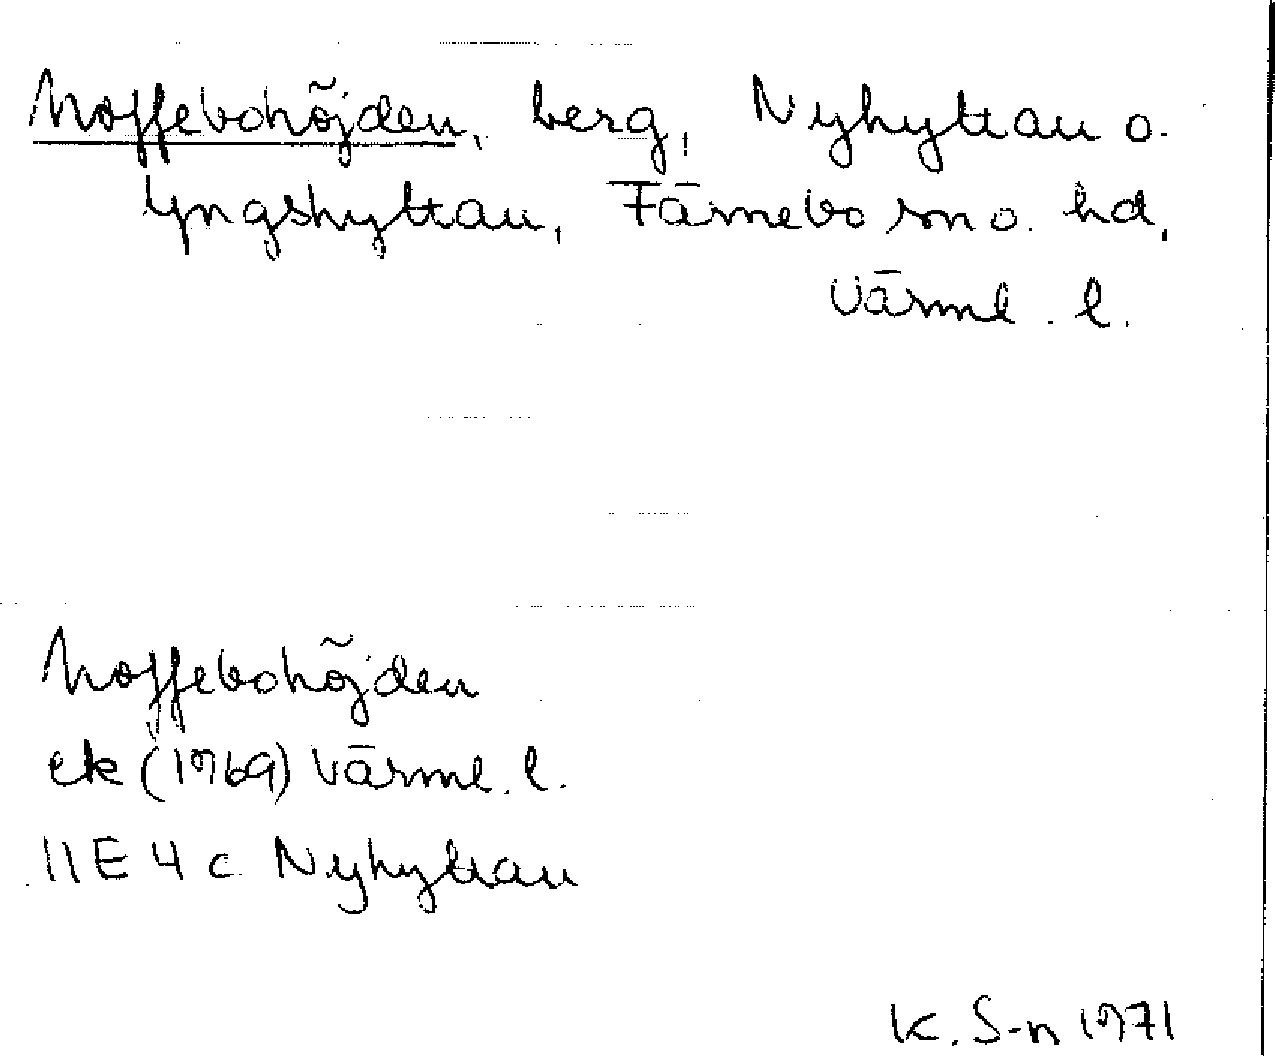 Noffebohöjden, berg, Nyhyttan o.
Yngshyttan, Färnebo sn o. hd,
Värml. l.
Noffebohöjden
ek (1969) Värml. l.
11E 4 c Nyhyttan
K. S-n 1971